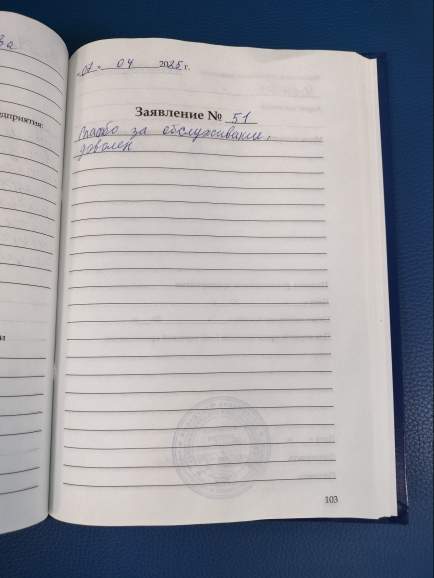 ва
едприятия:
и
«01» 04 2025 г.
Заявление № 51
Спасибо за обслуживание,
доволен
103